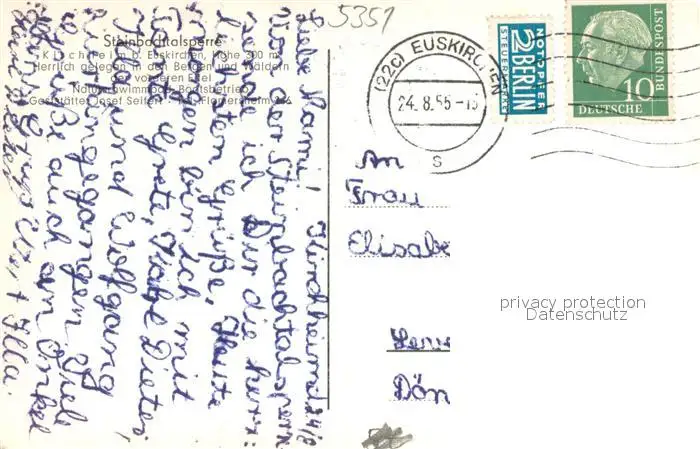 5351
Steinbachtalsperre
Kirchheim b. Euskirchen, Höhe 300 m
Herrlich gelegen in den Bergen und Wäldern
der vorderen Eifel
Naturschwimmbad, Bootsbetrieb
Gaststätte Josef Seifert
Kirchheim, d. 24/8
Liebe Mami!
Von der Steinbachtalsperre
sende ich Dir die herz=
lichsten Grüße. Heute
morgen bin ich mit
Tante Grete, Dieter
und Wolfgang
hingegangen. Viel
Grüße auch an Onkel
und Illa.
(22c) EUSKIRCHEN
24.8.55-18
s
NOTOPFER
2 BERLIN
STEUERMARKE
DEUTSCHE
BUNDESPOST
10
An
Frau
Elisabe
Dön
privacy protection
Datenschutz